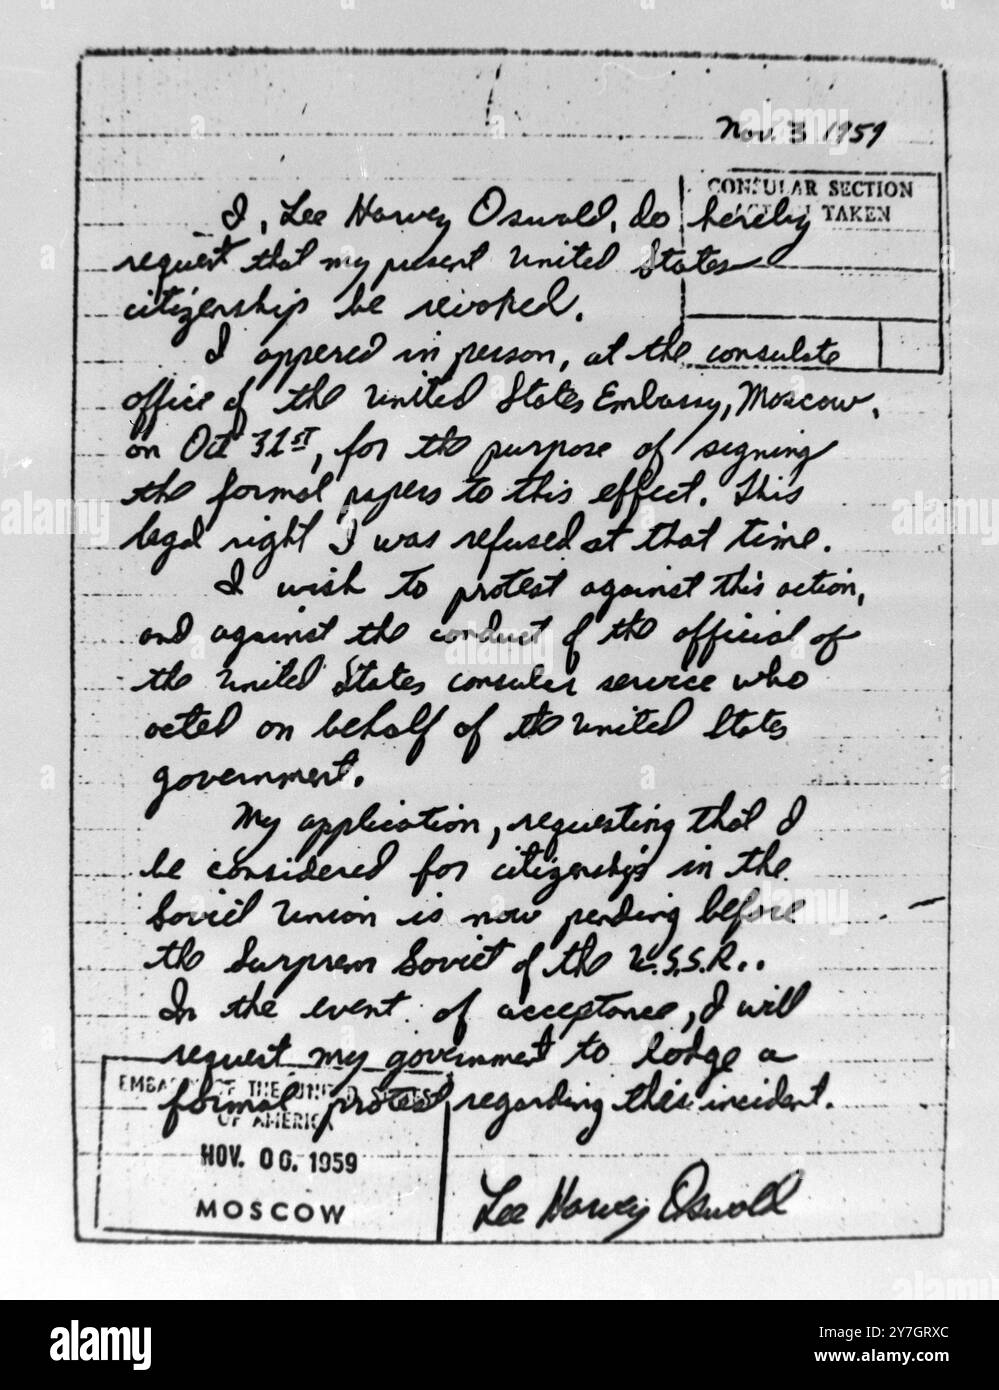 Nov. 3 1959
CONSULAR SECTION
TAKEN
I, Lee Harvey Oswald, do hereby
request that my present United States
citizenship be revoked.
I appered in person, at the consulate
office of the United States Embassy, Moscow,
on Oct 31st, for the purpose of signing
the formal papers to this effect. This
legal right I was refused at that time.
I wish to protest against this action,
and against the conduct of the official of
the United States consular service who
acted on behalf of the United States
government.
My application, requesting that I
be considered for citizenship in the
Soviet Union is now pending before
the Surprem Soviet of the U.S.S.R..
In the event of acceptance, I will
request my government to lodge a
formal protest regarding this incident.
EMBASSY OF THE UNITED STATES
OF AMERICA
NOV. 06. 1959
MOSCOW
Lee Harvey Oswald
alamy
Image ID: 2Y7GRXC
www.alamy.com